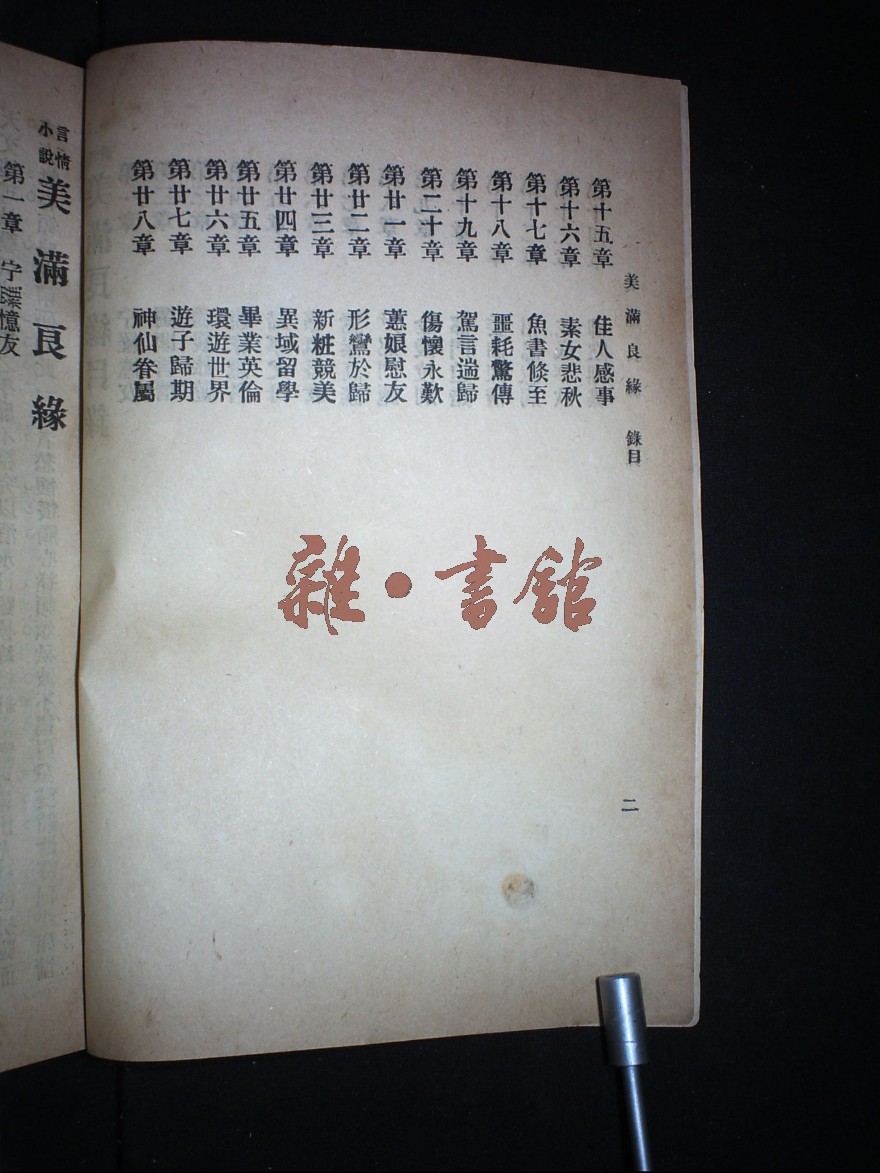 美滿良緣 錄目
第十五章 佳人感事
第十六章 素女悲秋
第十七章 魚書倏至
第十八章 噩耗驚傳
第十九章 駕言遄歸
第二十章 傷懷永歎
第廿一章 蕙娘慰友
第廿二章 形鸞於歸
第廿三章 新粧競美
第廿四章 異域留學
第廿五章 畢業英倫
第廿六章 環遊世界
第廿七章 遊子歸期
第廿八章 神仙眷屬
二
言情小說 美滿良緣
第一章 憶友
雜·書館